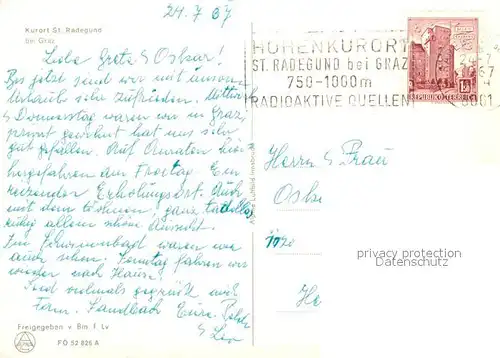 24. 7. 67
Kurort St. Radegund
bei Graz
Liebe Greta & Oskar!
Bis jetzt sind wir mit unserem
Urlaub sehr zufrieden. Mittwoch
& Donnerstag waren wir in Graz
privat gewohnt hat uns sehr
gut gefallen. Auf
am Freitag. Ein
reizender Erholungsort. Auch
mit dem Wohnen, ganz tadellos
ruhig allem schöne Aussicht.
Im Schwimmbad waren wir
auch schon. Sonntag fahren wir
wieder nach Hause.
Seid vielmals gegrüßt auch
Fam.
& Leo
Freigegeben v. Bm. f. Lv
FO 52 826 A
Alpine Luftbild Innsbruck
HÖHENKURORT
ST. RADEGUND bei GRAZ
750-1000m
RADIOAKTIVE QUELLEN
REPUBLIK ÖSTERREICH
Herrn & Frau
Osk
1090
He
privacy protection
www.ansichtskarten-center.de